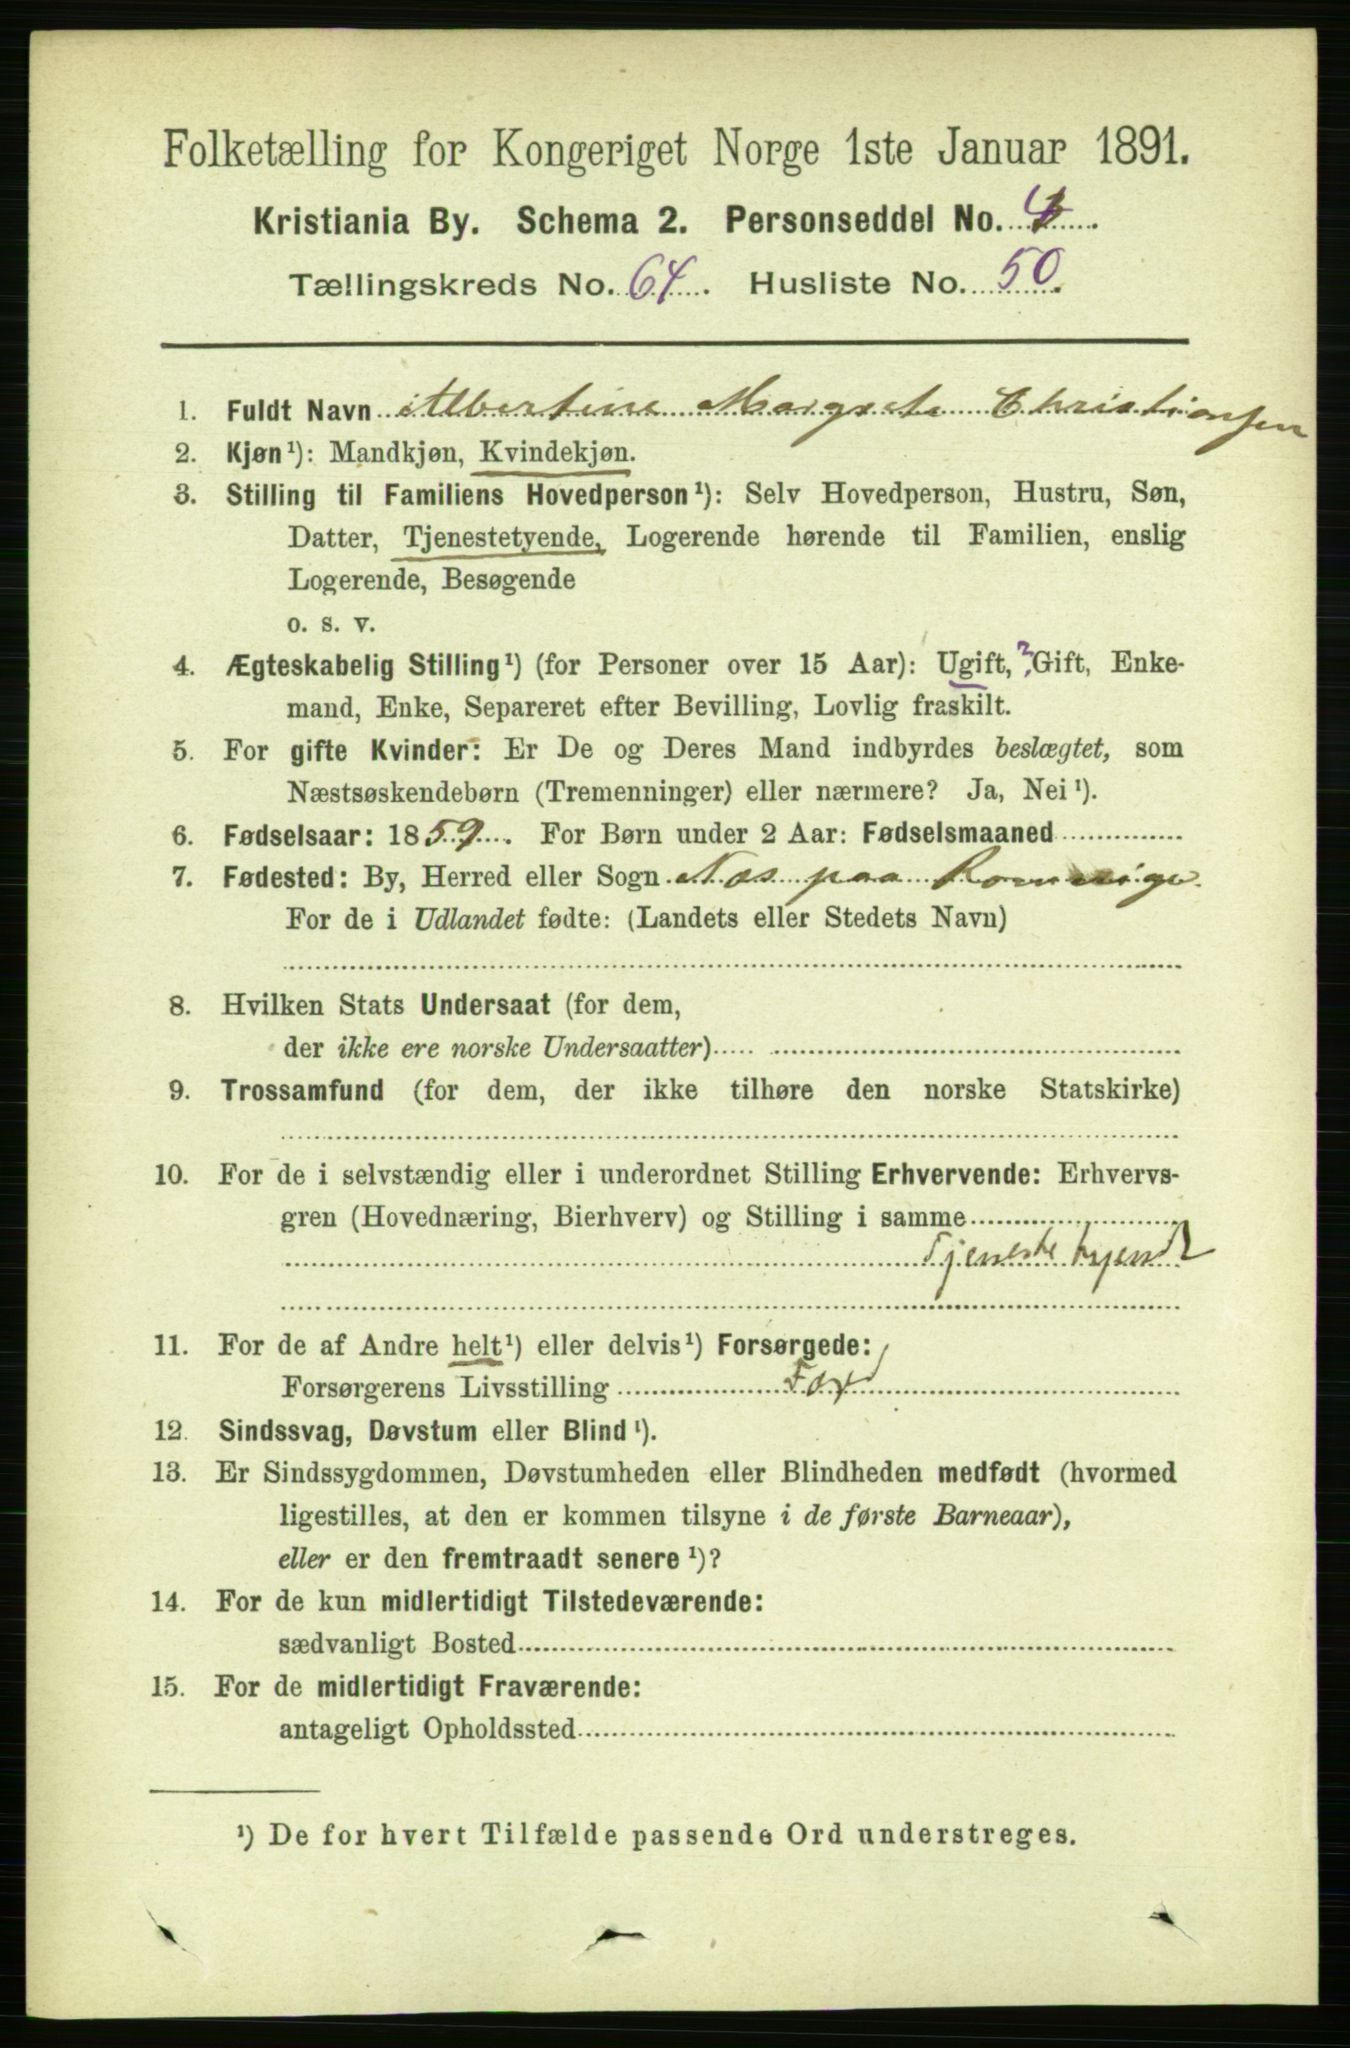 Folketælling for Kongeriget Norge 1ste Januar 1891.
Kristiania By. Schema 2. Personseddel No. 4
Tællingskreds No. 64. Husliste No. 50.
1. Fuldt Navn Albertine Margrete Christiansen
2. Kjøn¹): Mandkjøn, Kvindekjøn.
3. Stilling til Familiens Hovedperson¹): Selv Hovedperson, Hustru, Søn,
Datter, Tjenestetyende, Logerende hørende til Familien, enslig
Logerende, Besøgende
o. s. v.
4. Ægteskabelig Stilling¹) (for Personer over 15 Aar): Ugift, ? Gift, Enke-
mand, Enke, Separeret efter Bevilling, Lovlig fraskilt.
5. For gifte Kvinder: Er De og Deres Mand indbyrdes beslægtet, som
Næstsøskendebørn (Tremenninger) eller nærmere? Ja, Nei¹).
6. Fødselsaar: 1859. For Børn under 2 Aar: Fødselsmaaned
7. Fødested: By, Herred eller Sogn Nes paa Romerige
For de i Udlandet fødte: (Landets eller Stedets Navn)
8. Hvilken Stats Undersaat (for dem,
der ikke ere norske Undersaatter)
9. Trossamfund (for dem, der ikke tilhøre den norske Statskirke)
10. For de i selvstændig eller i underordnet Stilling Erhvervende: Erhvervs-
gren (Hovednæring, Bierhverv) og Stilling i samme
Tjenestetyende
11. For de af Andre helt¹) eller delvis¹) Forsørgede:
Forsørgerens Livsstilling
12. Sindssvag, Døvstum eller Blind¹).
13. Er Sindssygdommen, Døvstumheden eller Blindheden medfødt (hvormed
ligestilles, at den er kommen tilsyne i de første Barneaar),
eller er den fremtraadt senere¹)?
14. For de kun midlertidigt Tilstedeværende:
sædvanligt Bosted
15. For de midlertidigt Fraværende:
antageligt Opholdssted
¹) De for hvert Tilfælde passende Ord understreges.